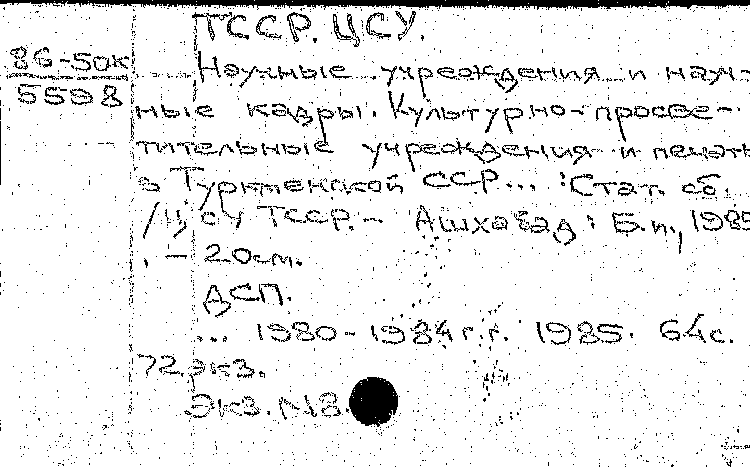 ТССР. ЦСУ.
86-50к
5598
Научные учреждения и науч-
ные кадры. Культурно-просве-
тительные учреждения и печать
в Туркменской ССР... : Стат. сб.
/ЦСУ ТССР. - Ашхабад : Б.и., 1985
. - 20см.
ДСП.
... 1980-1984 г.г. 1985. 64с.
72 экз.
Экз. №8.